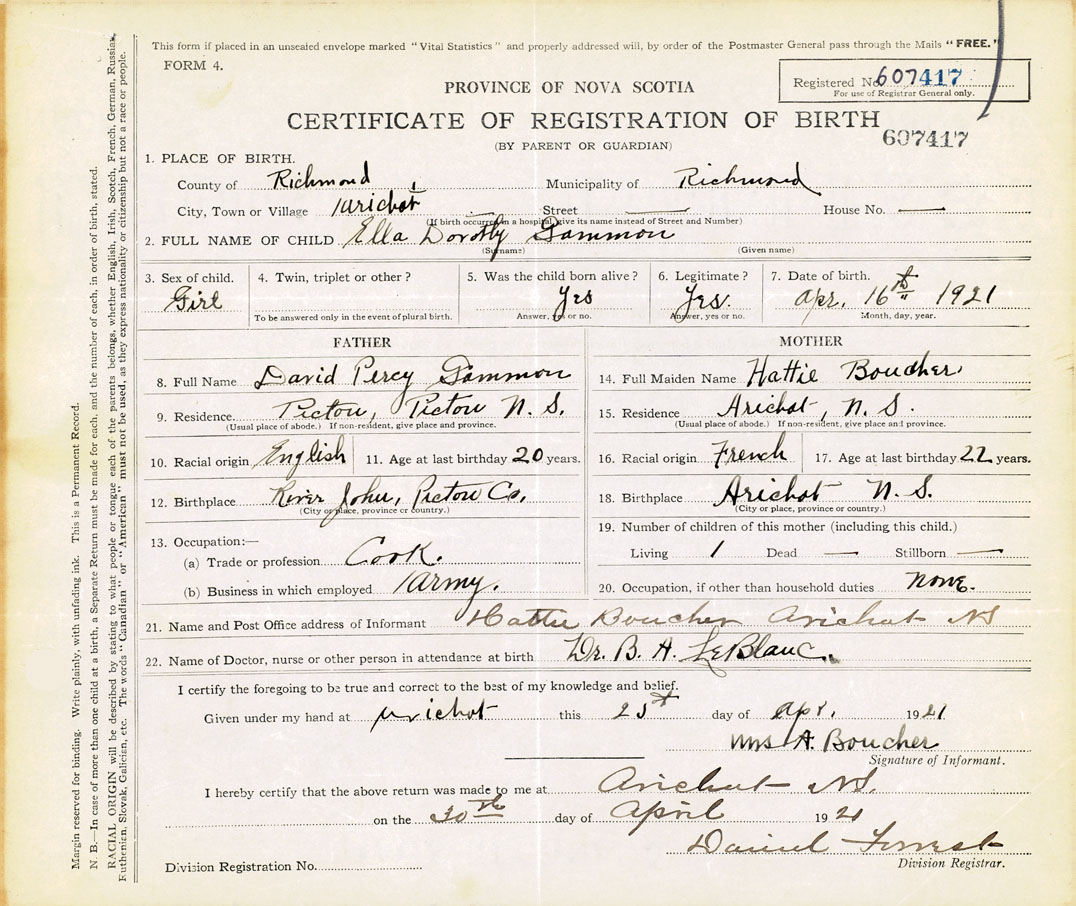 This form if placed in an unsealed envelope marked "Vital Statistics" and properly addressed will, by order of the Postmaster General pass through the Mails "FREE."
FORM 4.
Registered No. 607417
For use of Registrar General only.
PROVINCE OF NOVA SCOTIA
CERTIFICATE OF REGISTRATION OF BIRTH
607417
(BY PARENT OR GUARDIAN)
1. PLACE OF BIRTH.
County of Richmond Municipality of Richmond
City, Town or Village Arichat Street — House No. —
(If birth occurred in a hospital, give its name instead of Street and Number)
2. FULL NAME OF CHILD Ella Dorothy Gammon
(Surname) (Given name)
3. Sex of child. 4. Twin, triplet or other? 5. Was the child born alive? 6. Legitimate? 7. Date of birth.
Girl Yes Yes. Apr. 16th 1921
To be answered only in the event of plural birth. Answer, yes or no. Answer, yes or no. Month, day, year.
FATHER
8. Full Name David Percy Gammon
9. Residence. Pictou, Pictou N. S.
(Usual place of abode.) If non-resident, give place and province.
10. Racial origin English 11. Age at last birthday 20 years.
12. Birthplace River John, Pictou Co.
(City or place, province or country.)
13. Occupation:—
(a) Trade or profession Cook.
(b) Business in which employed Army.
MOTHER
14. Full Maiden Name Hattie Boucher
15. Residence Arichat, N. S.
(Usual place of abode.) If non-resident, give place and province.
16. Racial origin French 17. Age at last birthday 22 years.
18. Birthplace Arichat N. S.
(City or place, province or country.)
19. Number of children of this mother (including this child.)
Living 1 Dead — Stillborn —
20. Occupation, if other than household duties none.
21. Name and Post Office address of Informant Hattie Boucher Arichat NS
22. Name of Doctor, nurse or other person in attendance at birth Dr. B. A. LeBlanc.
I certify the foregoing to be true and correct to the best of my knowledge and belief.
Given under my hand at Arichat this 25th day of Apr. 1921
Mrs A. Boucher
Signature of Informant.
I hereby certify that the above return was made to me at Arichat NS.
on the 30th day of April 1921
Daniel Forrest
Division Registrar.
Division Registration No.
Margin reserved for binding. Write plainly, with unfading ink. This is a Permanent Record.
N. B.—In case of more than one child at a birth, a Separate Return must be made for each, and the number of each, in order of birth, stated.
RACIAL ORIGIN will be described by stating to what people or tongue each of the parents belongs, whether English, Irish, Scotch, French, German, Russian,
Ruthenian, Slovak, Galician, etc. The words "Canadian" or "American" must not be used, as they express nationality or citizenship but not a race or people.